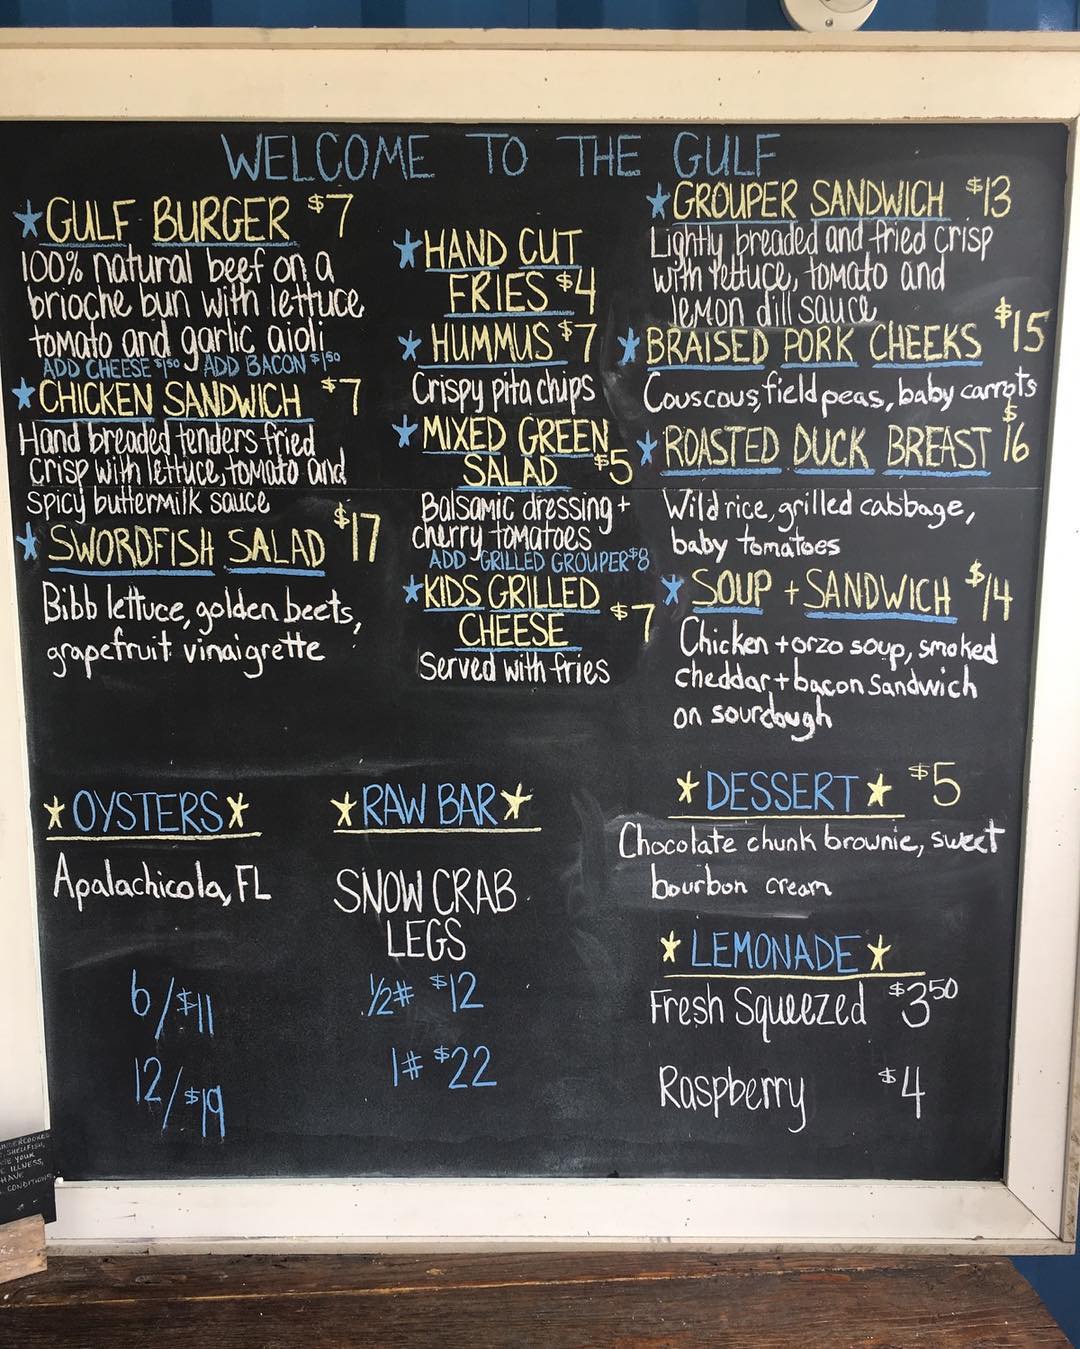 WELCOME TO THE GULF
GULF BURGER $7
100% natural beef on a
brioche bun with lettuce
tomato and garlic aioli
ADD CHEESE $1.50 ADD BACON $1.50
CHICKEN SANDWICH $7
Hand breaded tenders fried
crisp with lettuce, tomato and
spicy buttermilk sauce
SWORDFISH SALAD $17
Bibb lettuce, golden beets,
grapefruit vinaigrette
HAND CUT
FRIES $4
HUMMUS $7
Crispy pita chips
MIXED GREEN
SALAD $5
Balsamic dressing +
cherry tomatoes
ADD GRILLED GROUPER $8
KIDS GRILLED
CHEESE $7
Served with fries
GROUPER SANDWICH $13
Lightly breaded and fried crisp
with lettuce, tomato and
lemon dill sauce
BRAISED PORK CHEEKS $15
Couscous, field peas, baby carrots
ROASTED DUCK BREAST $16
Wild rice, grilled cabbage,
baby tomatoes
SOUP + SANDWICH $14
Chicken + orzo soup, smoked
cheddar + bacon sandwich
on sourdough
OYSTERS
Apalachicola, FL
6/$11
12/$19
RAW BAR
SNOW CRAB
LEGS
1/2# $12
1# $22
DESSERT $5
Chocolate chunk brownie, sweet
bourbon cream
LEMONADE
Fresh Squeezed $3.50
Raspberry $4
SHELLFISH,
YOUR
ILLNESS,
HAVE
CONDITIONS